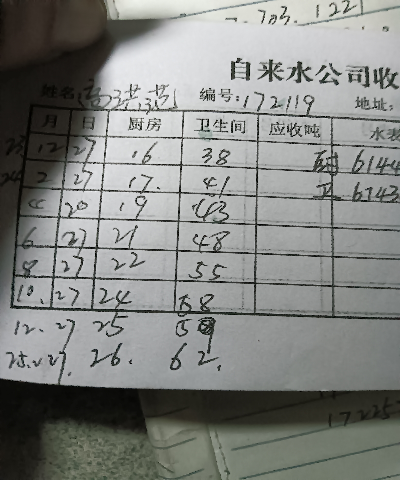 703.122
自来水公司收
姓名 编号:172119 地址:
月 日 厨房 卫生间 应收吨 水表
23 12 27 16 38 厨 6144
24 2 27 17. 41 卫 6143
4 20 19 43
6 27 21 48
8 27 22 55
10. 27 24 58
12. 27 25 59
25.2 27. 26. 62.